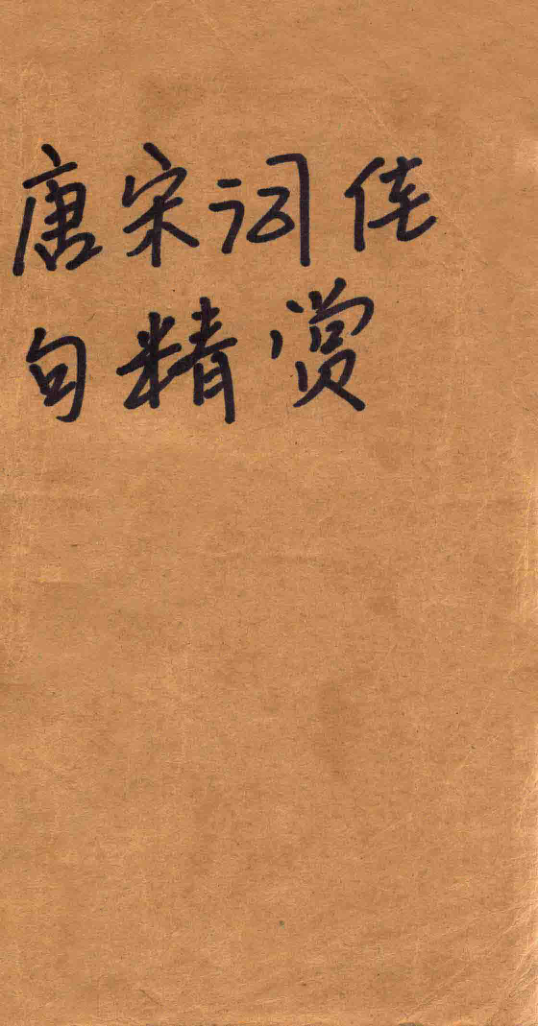 唐宋词佳
句精赏